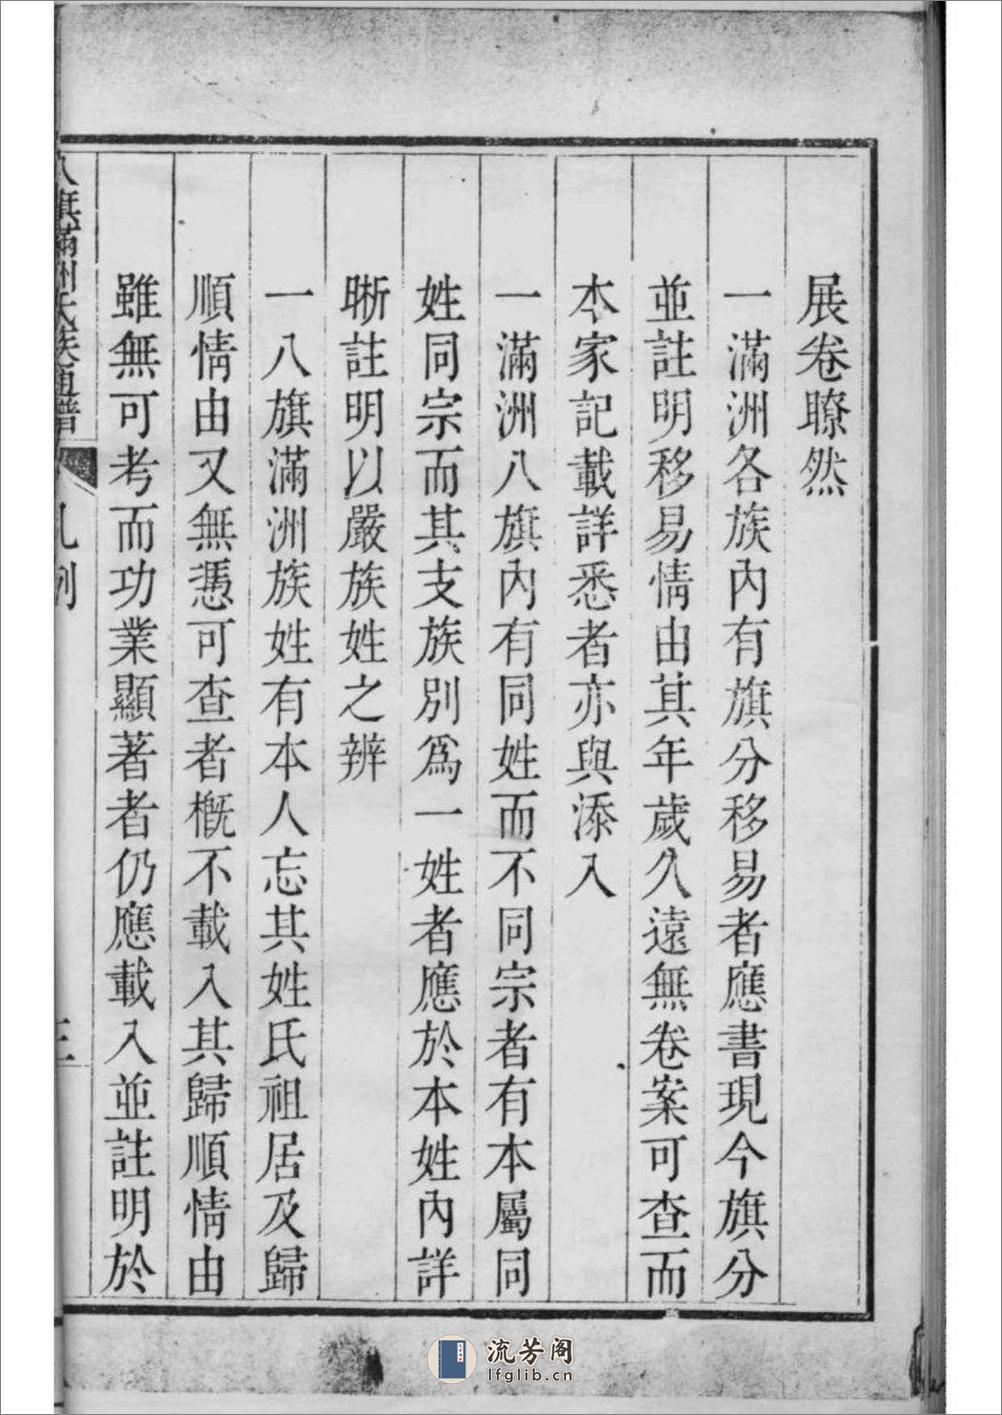 展卷瞭然
一滿洲各族內有旗分移易者應書現今旗分
並註明移易情由其年歲久遠無卷案可查而
本家記載詳悉者亦與添入
一滿洲八旗內有同姓而不同宗者有本屬同
姓同宗而其支族別爲一姓者應於本姓內詳
晰註明以嚴族姓之辨
一八旗滿洲族姓有本人忘其姓氏祖居及歸
順情由又無憑可查者槪不載入其歸順情由
雖無可考而功業顯著者仍應載入並註明於
八旗滿洲氏族通譜
凡例
三
流芳阁
lfglib.cn